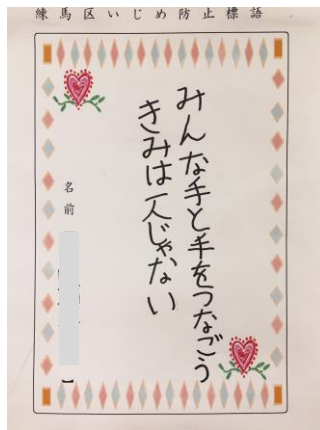 練馬区いじめ防止標語
みんな手と手をつなごう
きみは一人じゃない
名前
】